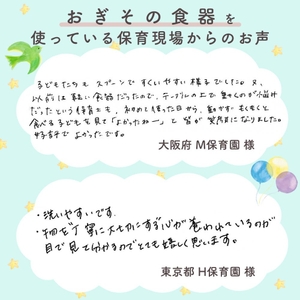 おぎその食器を
使っている保育現場からのお声
子どもたちも スプーンで すくいやすい様子でした。又、
以前は軽い食器だったので、テーブルの上で 動くのが悩み
だったという保育士も、初めて使った日から、動かず もくもくと
食べる子どもを見て「よかったねー」と 皆が笑顔になりました。
好評で よかったです。
大阪府 M保育園 様
・洗いやすいです。
・物を丁寧に大切にする心が養われているのが
目で見て分かるのでとても嬉しく思います。
東京都 H保育園 様